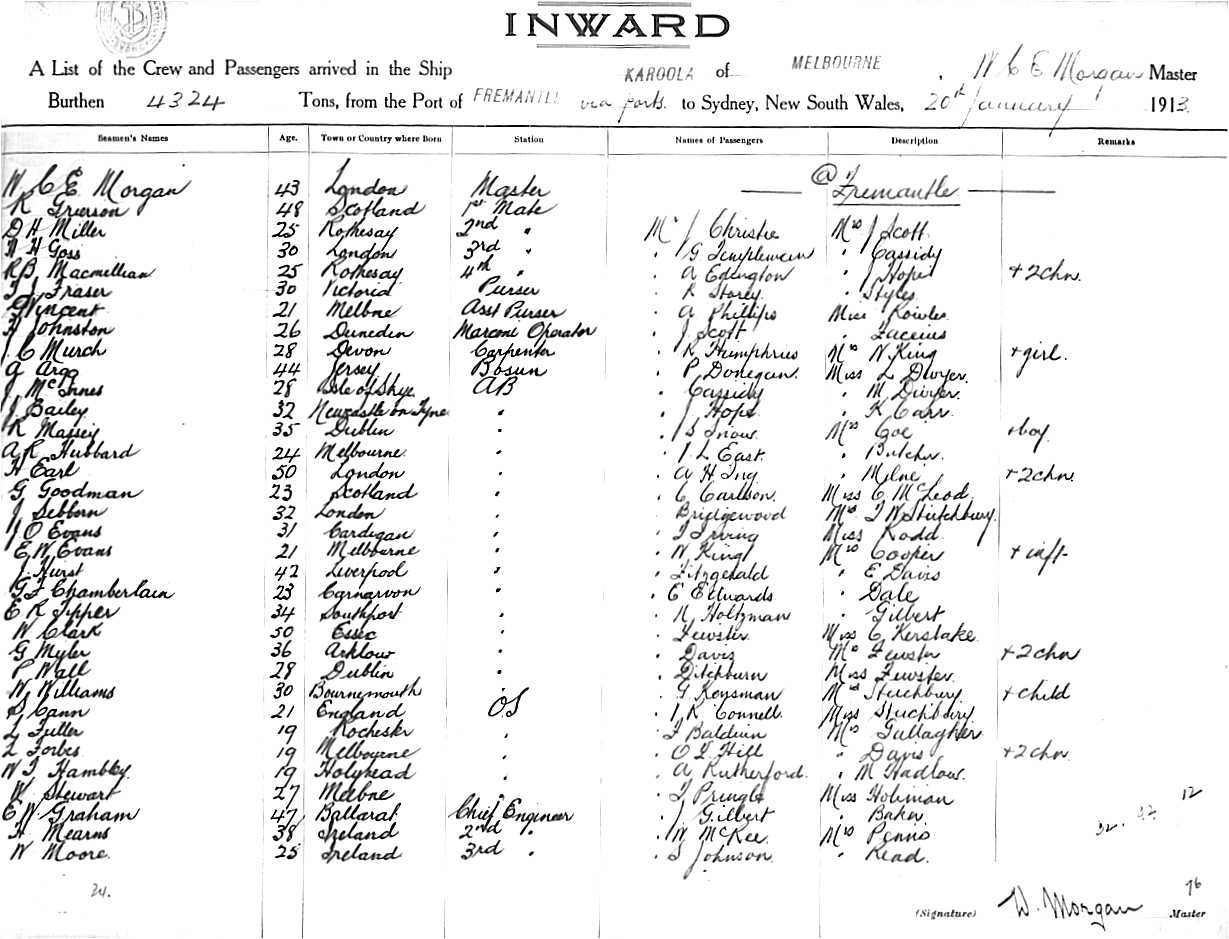 INWARD
A List of the Crew and Passengers arrived in the Ship KAROOLA of MELBOURNE, W C E Morgan Master
Burthen 4324 Tons, from the Port of FREMANTLE via ports to Sydney, New South Wales, 20th January 1913
Seamen's Names Age. Town or Country where Born Station Names of Passengers Description Remarks
@ Fremantle
W C E Morgan 43 London Master
K Grierson 48 Scotland 1st Mate
D H Miller 25 Rothesay 2nd " Mr J Christie Mrs J Scott
W H Goss 30 London 3rd " " G Templeman " Cassidy
R B Macmillan 25 Rothesay 4th " " A Edington " J Hope + 2 chn.
Fraser 30 Victoria Purser " R Storey " Styles
Vincent 21 Melbne Asst Purser " A Phillips Miss Rowles
Johnston 26 Dunedin Marconi Operator " J Scott "
J C Murch 28 Devon Carpenter " R Humphries Mrs W King + girl.
G Argo 44 Jersey Bosun " P Donegan. Miss L Dwyer.
J McInnes 28 Isle of Skye AB " Cassidy " M Dwyer.
J Bailey 32 Newcastle on Tyne " " J Hope " K Carr.
R Massey 35 Dublin " " J S Snow. Mrs Coe + boy
A R Hubbard 24 Melbourne " " L East. " Butcher.
H Earl 50 London " " A H Ing " Milne + 2 chn
G Goodman 23 Scotland " " C Carlson. Miss C McLeod.
J Sebborn 32 London " " Bridgewood Mrs T W Stutchbury.
O Evans 31 Cardigan " " Irving Miss Rodd
E W Evans 21 Melbourne " " W King Mrs Cooper + inft
J Hurst 42 Liverpool " " Fitzgerald " E Davis
G F Chamberlain 23 Carnarvon " " E Edwards " Dale
E R Tipper 34 Southport " " Holtzman " Gilbert
W Clark 50 Essex " " Fewster Miss C Kerslake
G Myler 36 Arklow " " Davis Mrs Fewster + 2 chn
P Wall 28 Dublin " " Ditchburn Miss Fewster.
W Williams 30 Bournemouth " " G Konsman Mrs Stutchbury + child
S Cann 21 England OS " R Connell. Miss Stutchbury
L Fuller 19 Rochester " " Baldwin Mrs Gallagher
L Forbes 19 Melbourne " " O L Hill " Davis + 2 chn.
Hambley. 19 Holyhead " " A Rutherford. " M Hadlow.
W Stewart 27 Melbne " " Pringle Miss Holiman 12
E W Graham 47 Ballarat Chief Engineer " J Gilbert " Baker 32. 32
H Mearns 38 Ireland 2nd " " W McKee. Mrs Penno
W Moore. 25 Ireland 3rd " " S Johnson. " Read.
34. 76
(Signature) W. Morgan Master